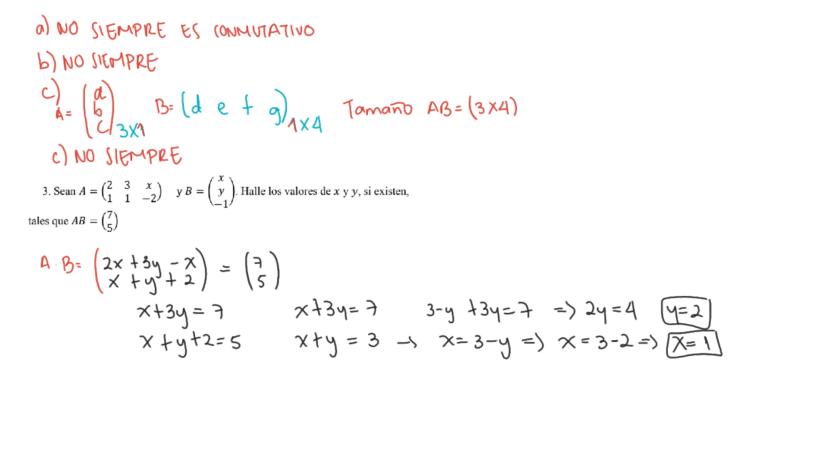 a) NO SIEMPRE ES CONMUTATIVO
b) NO SIEMPRE
c) A = (a b c) 3x1 B = (d e f g) 1x4 Tamaño AB = (3x4)
c) NO SIEMPRE
3. Sean A = (2 3 x 1 1 −2) y B = (x y −1). Halle los valores de x y y, si existen,
tales que AB = (7 5)
A B = (2x + 3y - x x + y + 2) = (7 5)
x + 3y = 7 x + 3y = 7 3 - y + 3y = 7 => 2y = 4 y = 2
x + y + 2 = 5 x + y = 3 → x = 3 - y => x = 3 - 2 => x = 1